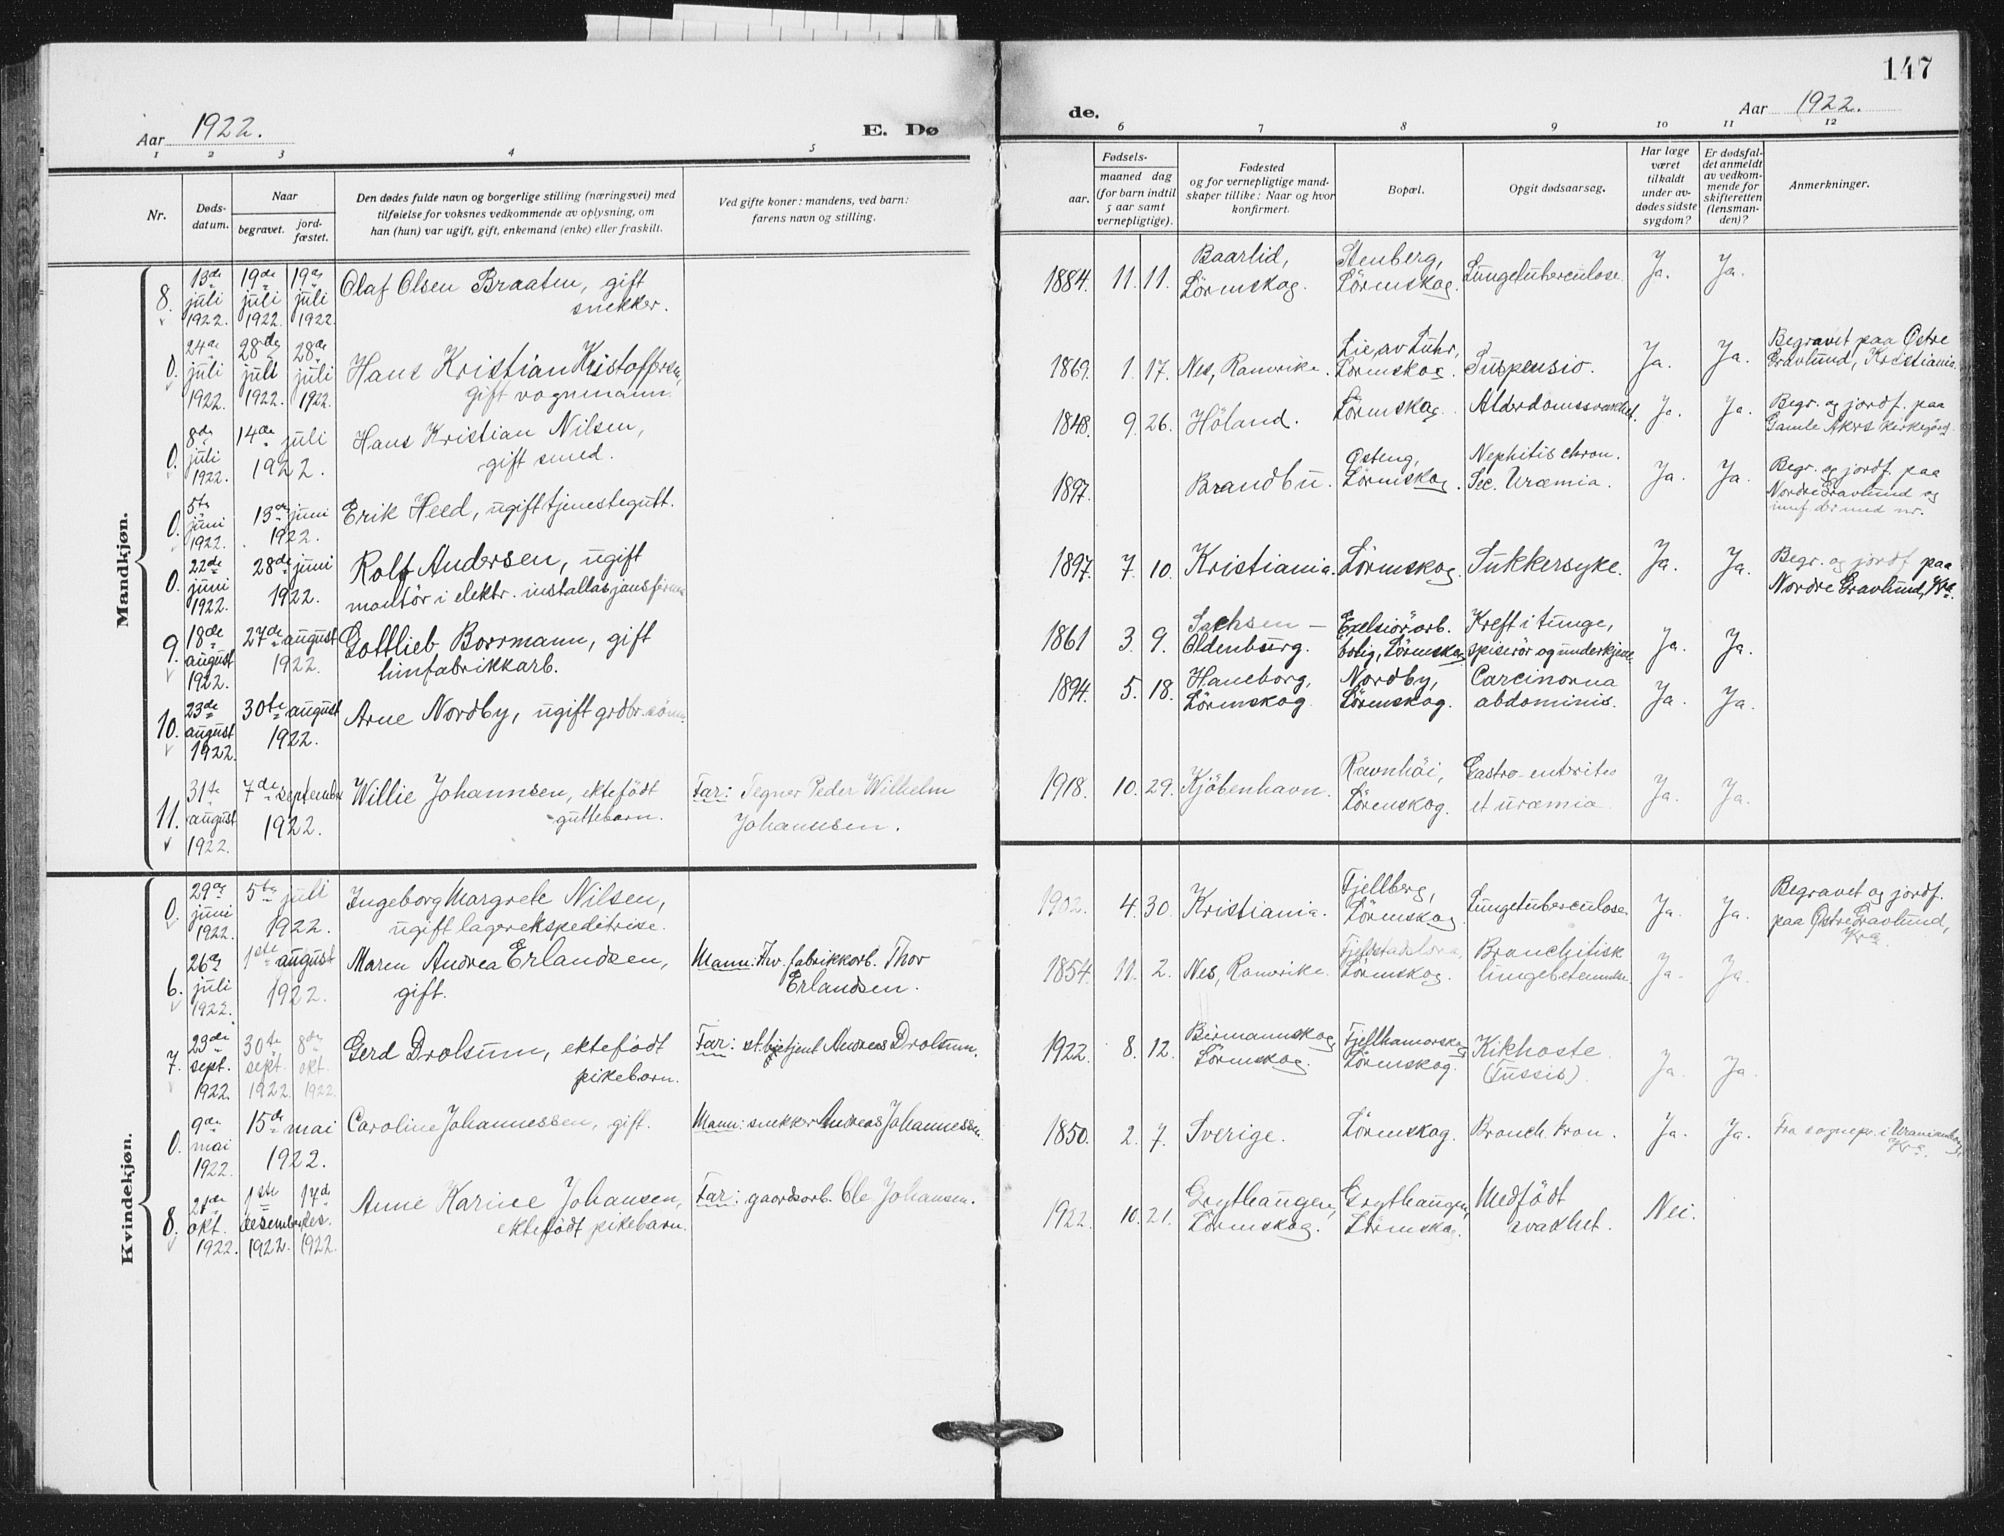 147
Aar 1922.
E. Dø
de.
Aar 1922.
1 2 3 4 5
6 7 8 9 10 11 12
Nr.
Døds-
datum.
Naar
begravet.
jord-
fæstet.
Den dødes fulde navn og borgerlige stilling (næringsvei) med
tilføielse for voksnes vedkommende av oplysning, om
han (hun) var ugift, gift, enkemand (enke) eller fraskilt.
Ved gifte koner: mandens, ved barn:
farens navn og stilling.
Fødsels-
aar.
maaned dag
(for barn indtil
5 aar samt
vernepligtige).
Fødested
og for vernepligtige mand-
skaper tillike: Naar og hvor
konfirmert.
Bopæl.
Opgit dødsaarsag.
Har læge
været
tilkaldt
under av-
dødes sidste
sygdom?
Er dødsfal-
det anmeldt
av vedkom-
mende for
skifteretten
(lensman-
den)?
Anmerkninger.
Mandkjøn.
8. 13de juli 1922. 19de juli 1922. 19de juli 1922.
Olaf Olsen Braaten, gift
snekker.
1884. 11. 11. Baarlid,
Lörenskog.
Stenberg,
Lörenskog.
Lungetuberculose. Ja. Ja.
0. 24de juli 1922. 28de juli 1922. 28de juli 1922.
Hans Kristian Kristoffersen,
gift vognmann.
1869. 1. 17. Nes, Romerike.
Lie av Luhr,
Lörenskog.
Suspensio. Ja. Ja.
Begravet paa Østre
Gravlund, Kristiania.
0. 8de juli 1922. 14de juli
1922.
Hans Kristian Nilsen,
gift smed.
1848. 9. 26. Höland. Lörenskog. Alderdomssvakhet. Ja. Ja.
Begr. og jordf. paa
Gamle Akers kirkegård.
0. 5te juni 1922. 13de juni
1922.
Erik Heed, ugift tjenestegutt.
1897. Brandbu.
Østeng,
Lörenskog.
Nephitis chron.
Sec. Uræmia. Ja. Ja.
Begr. og jordf. paa
Nordre Gravlund og
0. 22de juni 1922. 28de juni
1922.
Rolf Andersen, ugift
montör i elektr. installasjonsfirma
1897. 7. 10. Kristiania. Lörenskog. Sukkersyke. Ja. Ja.
Begr. og jordf paa
Nordre Gravlund, Kra.
9. 18de august 1922. 27de august
1922.
Gottlieb Borrmann, gift
limfabrikkarb.
1861 3. 9. Sachsen –
Oldenburg.
Exelsiör arb.
bolig, Lörenskog
Kreft i tunge,
spiserör og underkjeve. Ja. Ja.
10. 23de august 1922. 30te august
1922.
Arne Nordby, ugift grdbr.sönn.
1894. 5. 18. Haneborg,
Lörenskog
Nordby,
Lörenskog.
Carcinoma
abdominis. Ja. Ja.
11. 31te august 1922. 7de september
1922.
Willie Johannsen, ektefödt
guttebarn.
Far: Tegner Peder Wilhelm
Johannsen.
1918. 10. 29. Kjöbenhavn.
Ravnhöi,
Lörenskog.
Gastro-enterites
et uræmia. Ja. Ja.
Kvindekjøn.
0. 29de juni 1922. 5te juli
1922.
Ingeborg Margrete Nilsen,
ugift lagerekspeditrise.
1902. 4. 30. Kristiania.
Fjellberg,
Lörenskog
Lungetuberculose. Ja. Ja.
Begravet og jordf.
paa Østre Gravlund,
Kra.
6. 26de juli 1922. 1ste august
1922.
Maren Andrea Erlandsen,
gift.
Mann: Fhv. fabrikkarb. Thor
Erlandsen.
1854. 11. 2. Nes, Romerike.
Lörenskog.
Bronchitisk
lungebetennelse. Ja. Ja.
7. 23de sept. 1922. 30te sept. 1922. 8de okt. 1922.
Gerd Drolsum, ektefödt
pikebarn.
Far: st.betjent Andreas Drolsum.
1922. 8. 12. Birmannskog
Lörenskog.
Fjellhamarskog
Lörenskog.
Kikhoste
(Tussis). Ja. Ja.
0. 9de mai 1922. 15de mai
1922.
Caroline Johannessen, gift.
Mann: snekker Andreas Johannessen.
1850. 2. 7. Sverige. Lörenskog. Bronch. kron. Ja. Ja.
Fra sognepr. i Uranienborg,
Kra.
8. 21de okt. 1922. 1ste desember 1922. 17de des. 1922.
Anne Karine Johansen,
ektefödt pikebarn.
Far: gaardsarb. Ole Johansen.
1922. 10. 21. Grythaugen,
Lörenskog.
Grythaugen,
Lörenskog.
Medfödt
svakhet. Nei.